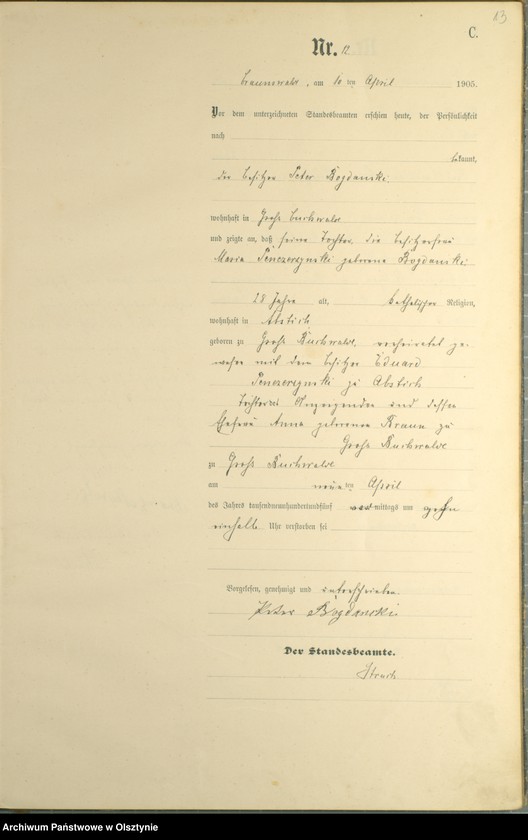 13
C.
Nr. 12
Braunswalde, am 10 ten April 1905.
Vor dem unterzeichneten Standesbeamten erschien heute, der Persönlichkeit
nach
bekannt,
der Besitzer Peter Bogdanski
wohnhaft in Groß Buchwalde
und zeigte an, daß seine Tochter, die Besitzerfrau
Maria Penczerzynski geborene Bogdanski
28 Jahre alt, katholischer Religion,
wohnhaft in Abstich
geboren zu Groß Buchwalde, verheiratet ge-
wesen mit dem Besitzer Eduard
Penczerzynski zu Abstich
Tochter des Anzeigenden und dessen
Ehefrau Anna geborenen Braun zu
Groß Buchwalde
zu Groß Buchwalde
am neun ten April
des Jahres tausendneunhundertundfünf mittags um zehn
einhalb Uhr verstorben sei
Vorgelesen, genehmigt und unterschrieben
Peter Bogdanski
Der Standesbeamte.
Archiwum Państwowe w Olsztynie